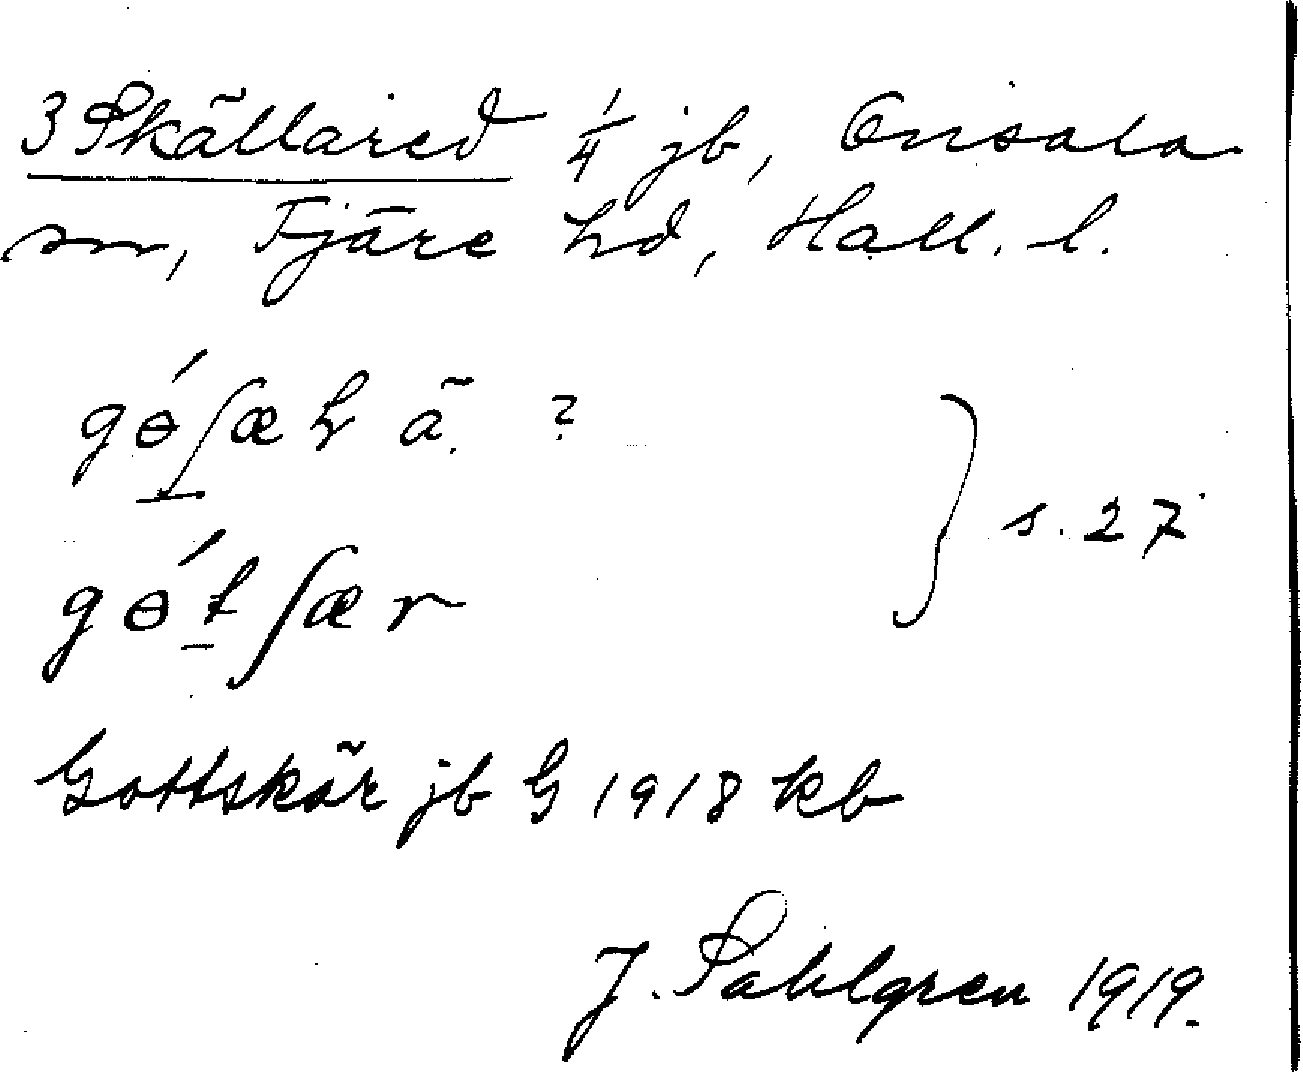 3 Skällared 1/4 jb, Onsala
sn, Fjäre hd, Hall. l.
gɵ́ʃæ ã ?
gɵ́tʃær
} s. 27
Gottskär jb G 1918 kb
J. Sahlgren 1919.